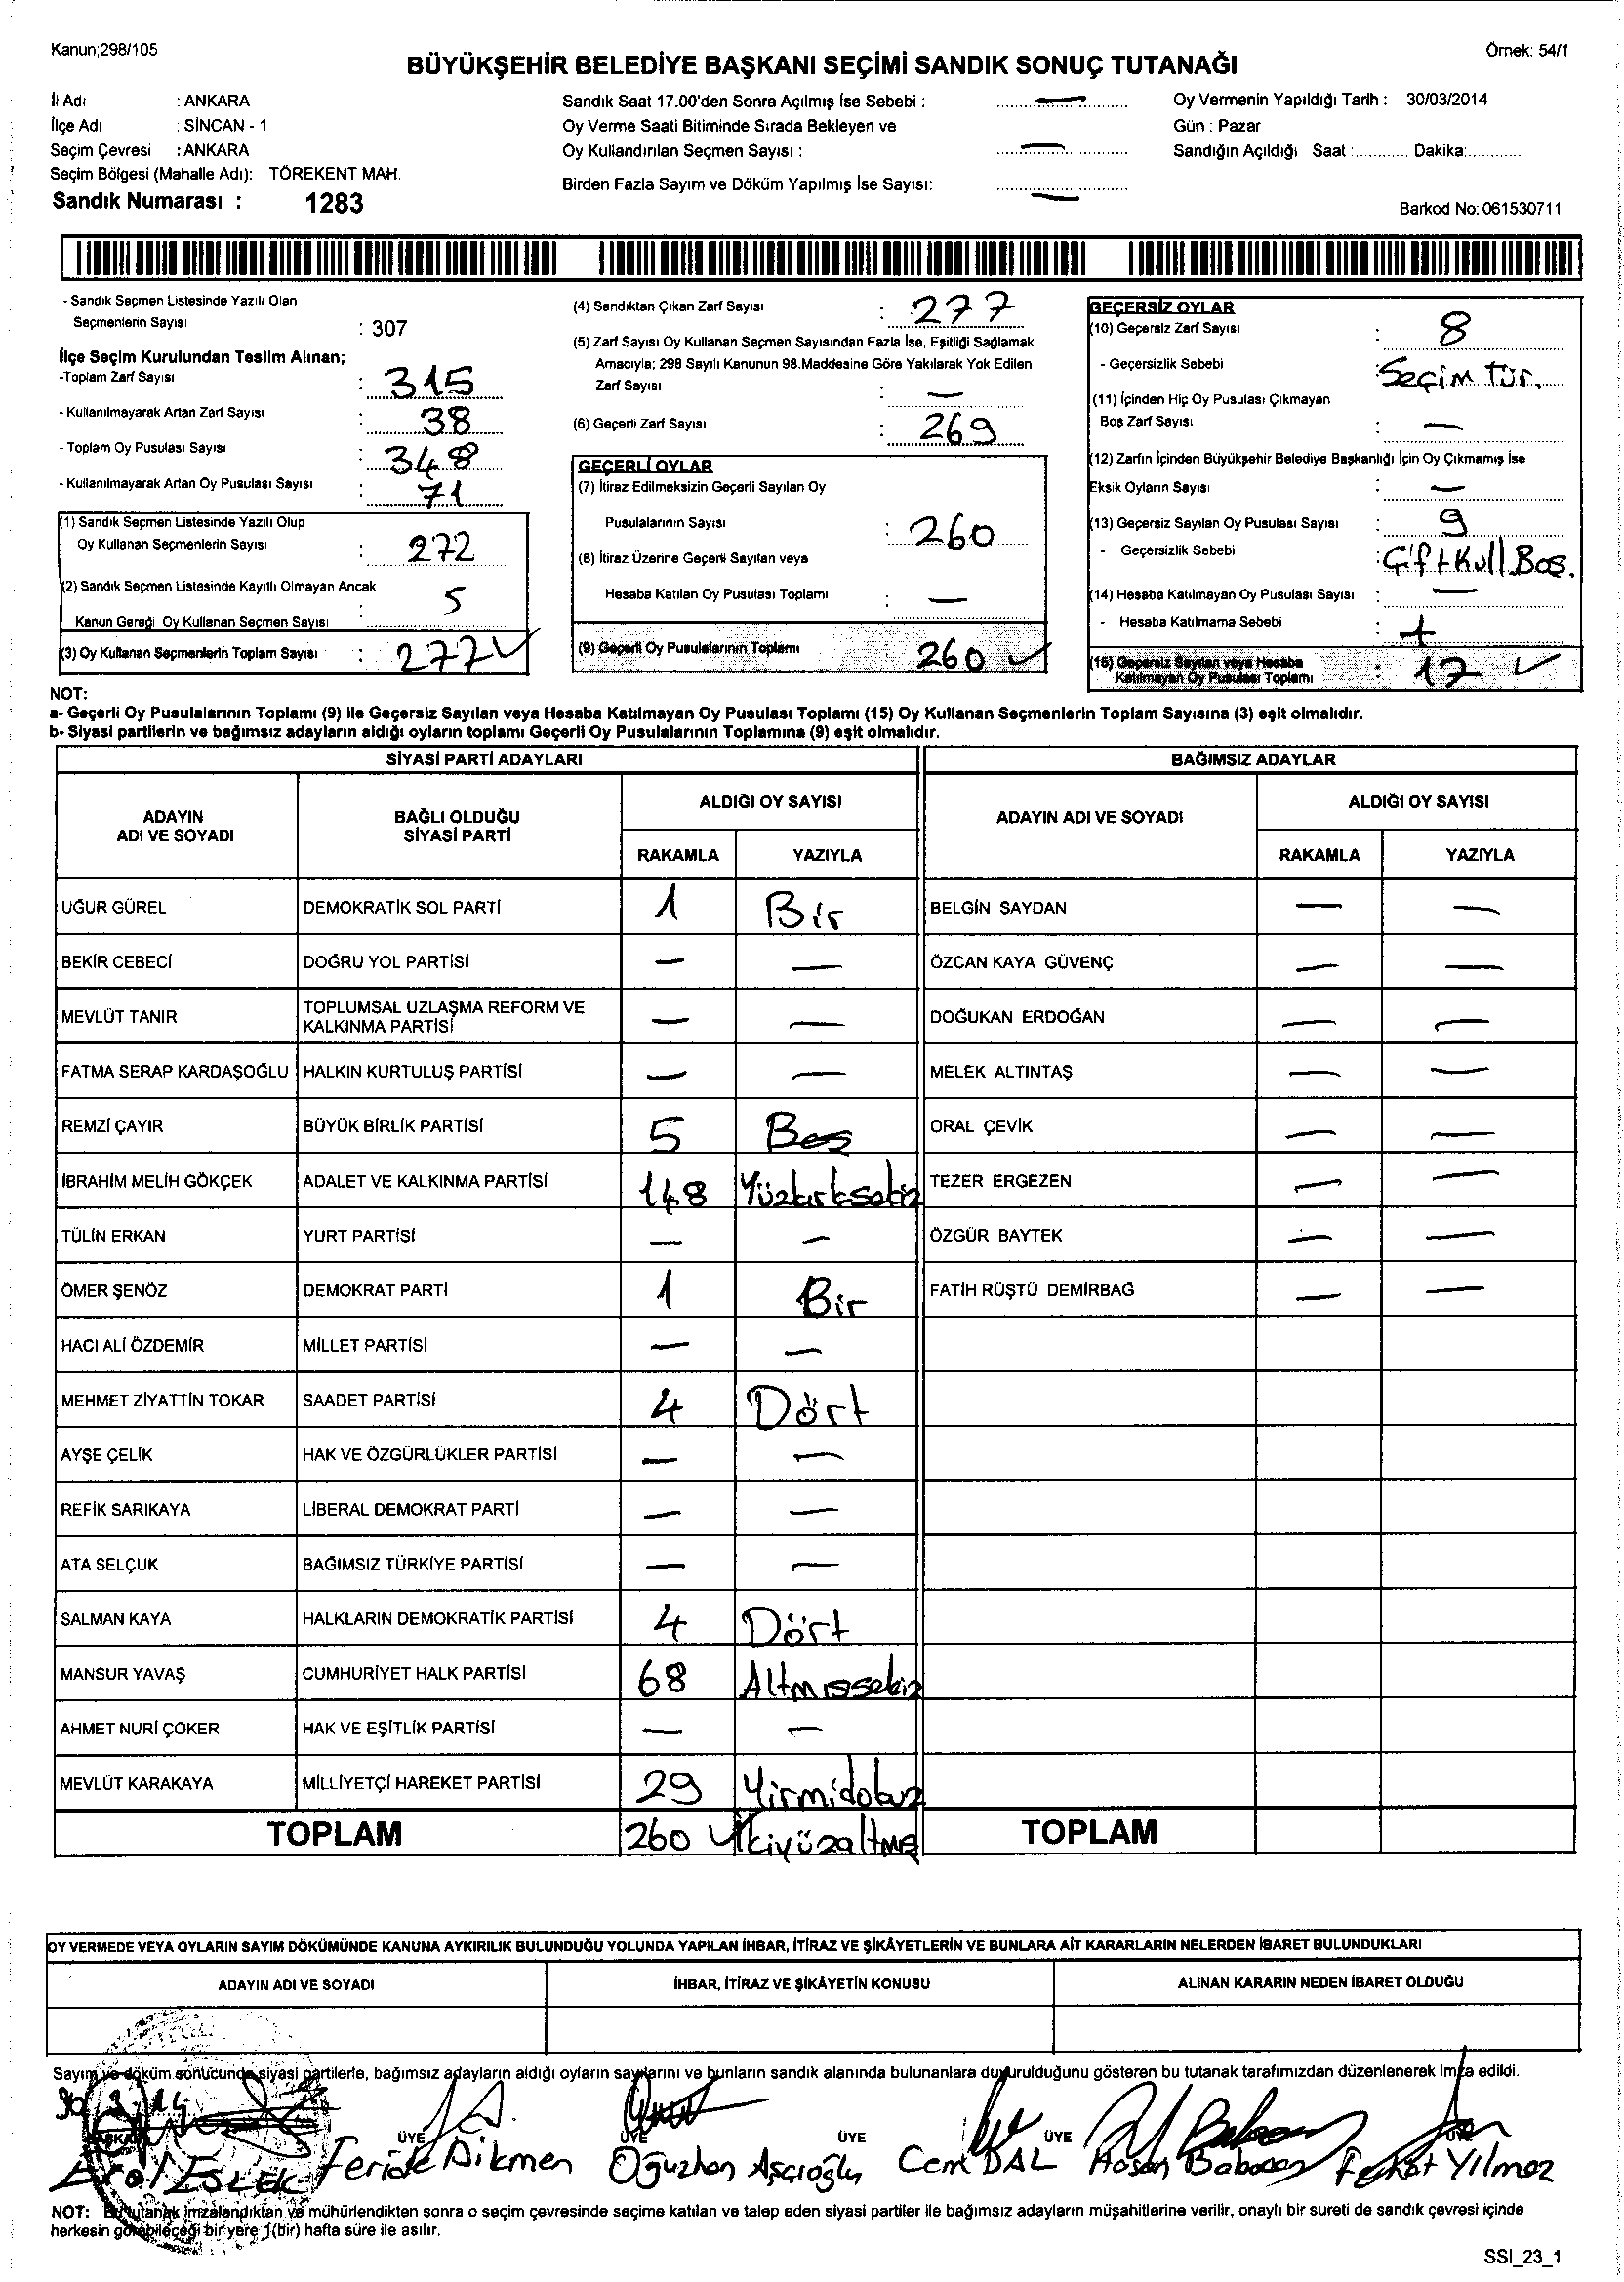 Kanun;298/105
Örnek: 54/1
BÜYÜKŞEHİR BELEDİYE BAŞKANI SEÇİMİ SANDIK SONUÇ TUTANAĞI
İl Adı : ANKARA
İlçe Adı : SİNCAN - 1
Seçim Çevresi : ANKARA
Seçim Bölgesi (Mahalle Adı): TÖREKENT MAH.
Sandık Numarası : 1283
Sandık Saat 17.00'den Sonra Açılmış İse Sebebi : —
Oy Verme Saati Bitiminde Sırada Bekleyen ve
Oy Kullandırılan Seçmen Sayısı : —
Birden Fazla Sayım ve Döküm Yapılmış İse Sayısı: —
Oy Vermenin Yapıldığı Tarih : 30/03/2014
Gün : Pazar
Sandığın Açıldığı Saat :............ Dakika:............
Barkod No: 061530711
- Sandık Seçmen Listesinde Yazılı Olan
Seçmenlerin Sayısı : 307
İlçe Seçim Kurulundan Teslim Alınan;
-Toplam Zarf Sayısı : 315
- Kullanılmayarak Artan Zarf Sayısı : 38
- Toplam Oy Pusulası Sayısı : 348
- Kullanılmayarak Artan Oy Pusulası Sayısı : 71
(1) Sandık Seçmen Listesinde Yazılı Olup
Oy Kullanan Seçmenlerin Sayısı : 272
(2) Sandık Seçmen Listesinde Kayıtlı Olmayan Ancak
Kanun Gereği Oy Kullanan Seçmen Sayısı : 5
(3) Oy Kullanan Seçmenlerin Toplam Sayısı : 277 ✓
(4) Sandıktan Çıkan Zarf Sayısı : 277
(5) Zarf Sayısı Oy Kullanan Seçmen Sayısından Fazla İse, Eşitliği Sağlamak
Amacıyla; 298 Sayılı Kanunun 98.Maddesine Göre Yakılarak Yok Edilen
Zarf Sayısı : —
(6) Geçerli Zarf Sayısı : 269
GEÇERLİ OYLAR
(7) İtiraz Edilmeksizin Geçerli Sayılan Oy
Pusulalarının Sayısı : 260
(8) İtiraz Üzerine Geçerli Sayılan veya
Hesaba Katılan Oy Pusulası Toplamı : —
(9) Geçerli Oy Pusulalarının Toplamı 260 ✓
GEÇERSİZ OYLAR
(10) Geçersiz Zarf Sayısı : 8
- Geçersizlik Sebebi : Seçim Tür.
(11) İçinden Hiç Oy Pusulası Çıkmayan
Boş Zarf Sayısı : —
(12) Zarfın İçinden Büyükşehir Belediye Başkanlığı İçin Oy Çıkmamış İse
Eksik Oyların Sayısı : —
(13) Geçersiz Sayılan Oy Pusulası Sayısı : 9
- Geçersizlik Sebebi : Çift Kull Boş.
(14) Hesaba Katılmayan Oy Pusulası Sayısı : —
- Hesaba Katılmama Sebebi :
(15) Geçersiz Sayılan veya Hesaba
Katılmayan Oy Pusulası Toplamı : 17 ✓
NOT:
a- Geçerli Oy Pusulalarının Toplamı (9) ile Geçersiz Sayılan veya Hesaba Katılmayan Oy Pusulası Toplamı (15) Oy Kullanan Seçmenlerin Toplam Sayısına (3) eşit olmalıdır.
b- Siyasi partilerin ve bağımsız adayların aldığı oyların toplamı Geçerli Oy Pusulalarının Toplamına (9) eşit olmalıdır.
SİYASİ PARTİ ADAYLARI BAĞIMSIZ ADAYLAR
ADAYIN ADI VE SOYADI BAĞLI OLDUĞU SİYASİ PARTİ ALDIĞI OY SAYISI ADAYIN ADI VE SOYADI ALDIĞI OY SAYISI
RAKAMLA YAZIYLA RAKAMLA YAZIYLA
UĞUR GÜREL DEMOKRATİK SOL PARTİ 1 Bir BELGİN SAYDAN — —
BEKİR CEBECİ DOĞRU YOL PARTİSİ — — ÖZCAN KAYA GÜVENÇ — —
MEVLÜT TANIR TOPLUMSAL UZLAŞMA REFORM VE KALKINMA PARTİSİ — — DOĞUKAN ERDOĞAN — —
FATMA SERAP KARDAŞOĞLU HALKIN KURTULUŞ PARTİSİ — — MELEK ALTINTAŞ — —
REMZİ ÇAYIR BÜYÜK BİRLİK PARTİSİ 5 Beş ORAL ÇEVİK — —
İBRAHİM MELİH GÖKÇEK ADALET VE KALKINMA PARTİSİ 148 Yüzkırksekiz TEZER ERGEZEN — —
TÜLİN ERKAN YURT PARTİSİ — — ÖZGÜR BAYTEK — —
ÖMER ŞENÖZ DEMOKRAT PARTİ 1 Bir FATİH RÜŞTÜ DEMİRBAĞ — —
HACI ALİ ÖZDEMİR MİLLET PARTİSİ — —
MEHMET ZİYATTİN TOKAR SAADET PARTİSİ 4 Dört
AYŞE ÇELİK HAK VE ÖZGÜRLÜKLER PARTİSİ — —
REFİK SARIKAYA LİBERAL DEMOKRAT PARTİ — —
ATA SELÇUK BAĞIMSIZ TÜRKİYE PARTİSİ — —
SALMAN KAYA HALKLARIN DEMOKRATİK PARTİSİ 4 Dört
MANSUR YAVAŞ CUMHURİYET HALK PARTİSİ 68 Altmışsekiz
AHMET NURİ ÇOKER HAK VE EŞİTLİK PARTİSİ — —
MEVLÜT KARAKAYA MİLLİYETÇİ HAREKET PARTİSİ 29 Yirmidokuz
TOPLAM 260 ✓ İkiyüzaltmış TOPLAM
OY VERMEDE VEYA OYLARIN SAYIM DÖKÜMÜNDE KANUNA AYKIRILIK BULUNDUĞU YOLUNDA YAPILAN İHBAR, İTİRAZ VE ŞİKÂYETLERİN VE BUNLARA AİT KARARLARIN NELERDEN İBARET BULUNDUKLARI
ADAYIN ADI VE SOYADI İHBAR, İTİRAZ VE ŞİKÂYETİN KONUSU ALINAN KARARIN NEDEN İBARET OLDUĞU
Sayım ve döküm sonucunda siyasi partilerle, bağımsız adayların aldığı oyların sayılarını ve bunların sandık alanında bulunanlara duyurulduğunu gösteren bu tutanak tarafımızdan düzenlenerek imza edildi.
BAŞKAN ÜYE ÜYE ÜYE ÜYE ÜYE
Feride Dikmen Oğuzhan Aşçıoğlu Cem DAL Hasan Ferhat Yılmaz
NOT: Bu tutanak imzalandıktan ve mühürlendikten sonra o seçim çevresinde seçime katılan ve talep eden siyasi partiler ile bağımsız adayların müşahitlerine verilir, onaylı bir sureti de sandık çevresi içinde
herkesin görebileceği bir yere 1(bir) hafta süre ile asılır.
SSI_23_1